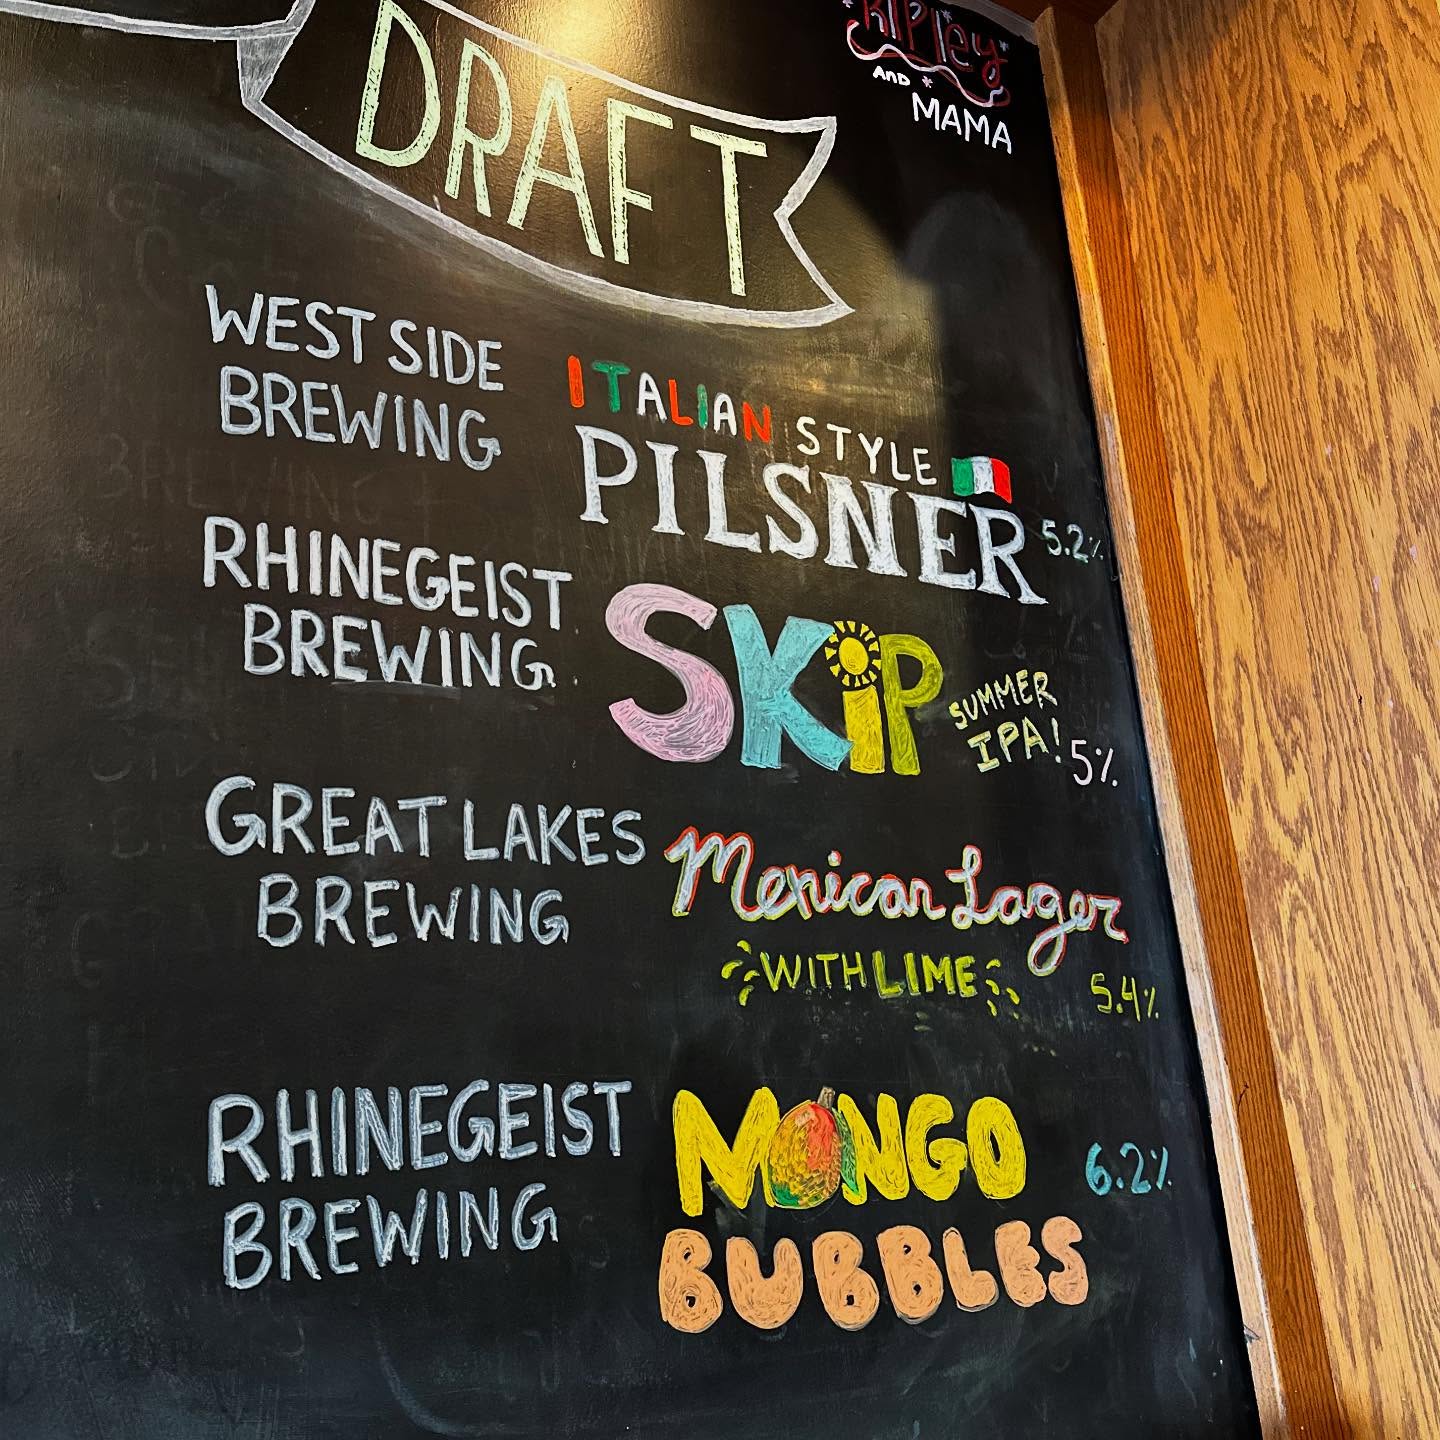 DRAFT
RIPley
AND
MAMA
WEST SIDE
BREWING
ITALIAN STYLE
PILSNER 5.2%
RHINEGEIST
BREWING
SKiP
SUMMER
IPA! 5%
GREAT LAKES
BREWING
Mexican Lager
WITH LIME
5.4%
RHINEGEIST
BREWING
MONGO
BUBBLES
6.2%